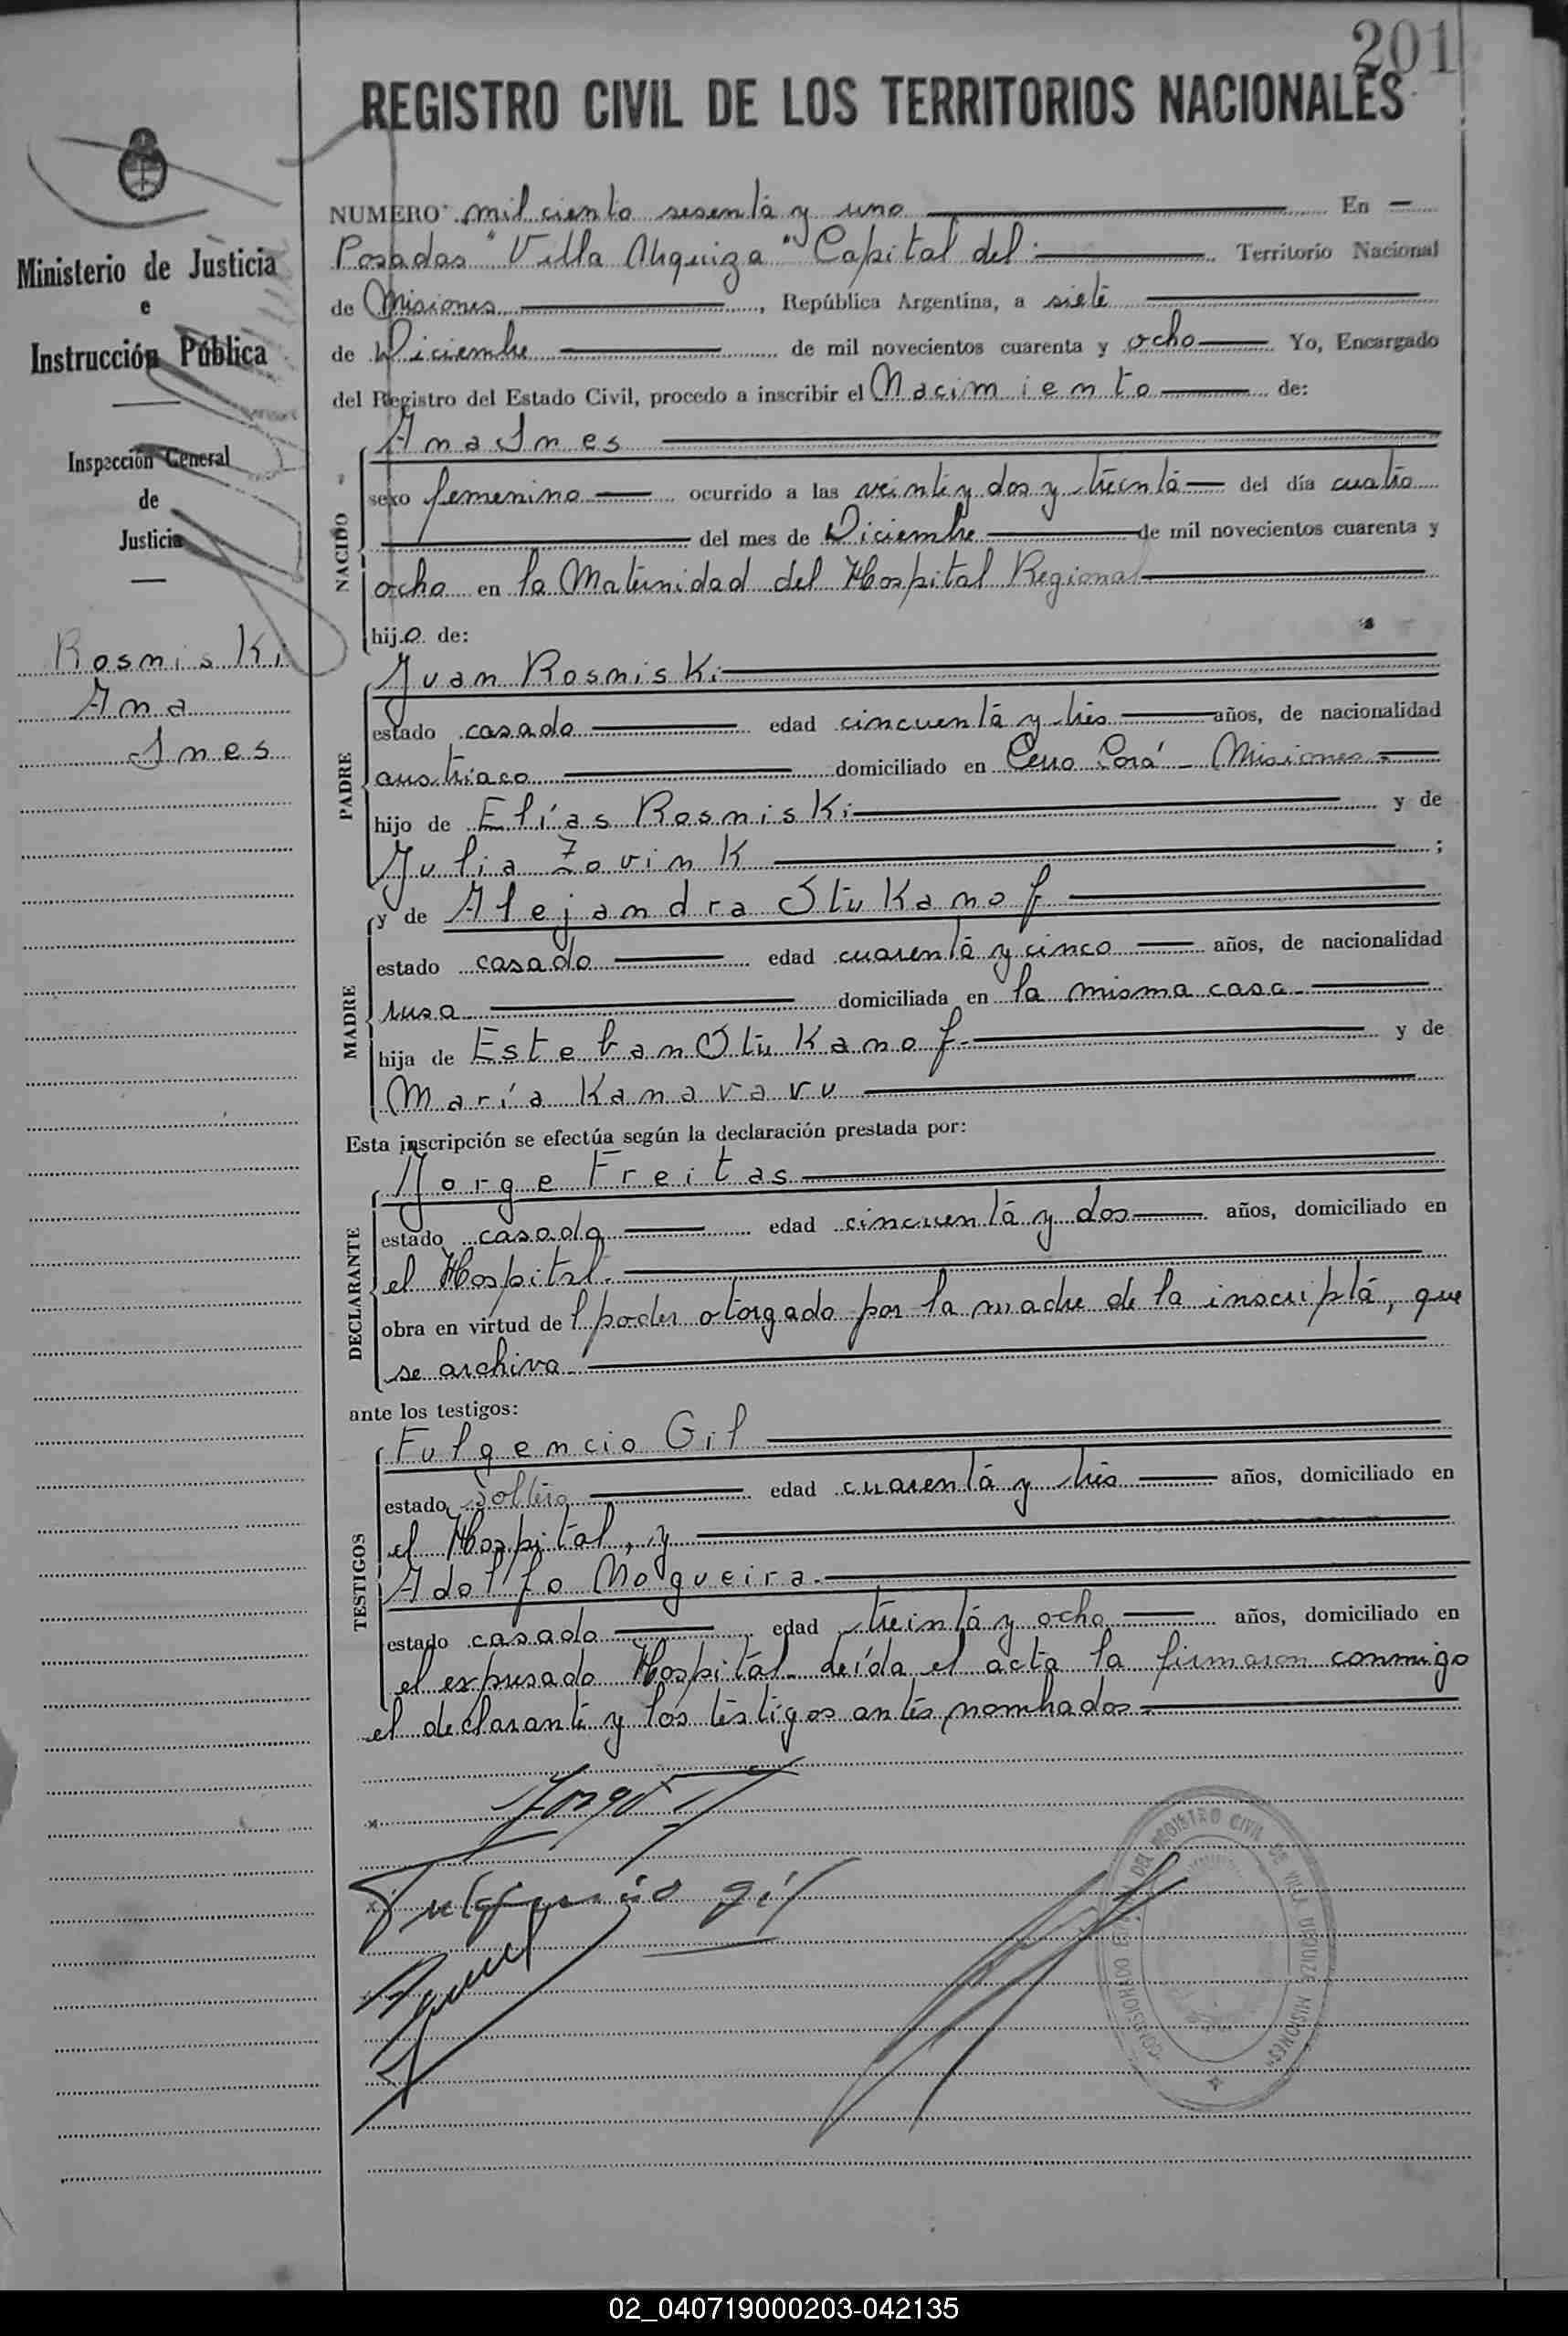 201
REGISTRO CIVIL DE LOS TERRITORIOS NACIONALES
Ministerio de Justicia
e
Instrucción Pública
Inspección General
de
Justicia
Rosniski
Ana
Ines
NUMERO mil ciento sesenta y uno En
Posadas "Villa Urquiza" Capital del: Territorio Nacional
de Misiones, República Argentina, a siete
de Diciembre de mil novecientos cuarenta y ocho Yo, Encargado
del Registro del Estado Civil, procedo a inscribir el Nacimiento de:
NACIDO
Ana Ines
sexo femenino ocurrido a las veinte y dos y treinta del día cuatro
del mes de Diciembre de mil novecientos cuarenta y
ocho en la Maternidad del Hospital Regional
hijo de:
PADRE
Juan Rosniski
estado casado edad cincuenta y tres años, de nacionalidad
austriaco domiciliado en Cerro Corá - Misiones -
hijo de Elías Rosniski y de
Julia Zovink ;
MADRE
y de Alejandra Stukanof
estado casado edad cuarenta y cinco años, de nacionalidad
rusa domiciliada en la misma casa.
hija de Esteban Stukanof- y de
María Kanavavu
Esta inscripción se efectúa según la declaración prestada por:
DECLARANTE
Jorge Freitas
estado casado edad cincuenta y dos años, domiciliado en
el Hospital.
obra en virtud del poder otorgado por la madre de la inscripta, que
se archiva.
ante los testigos:
TESTIGOS
Fulgencio Gil
estado Soltero edad cuarenta y tres años, domiciliado en
el Hospital, y
Adolfo Nogueira.
estado casado edad treinta y ocho años, domiciliado en
el expresado Hospital. Leída el acta la firmaron conmigo
el declarante y los testigos antes nombrados.
Jorge
Fulgencio gil
DEL REGISTRO CIVIL DE VILLA URQUIZA MISIONES
02_040719000203-042135